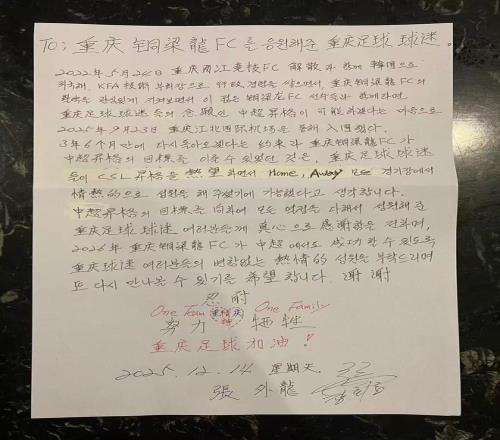 To: 重庆 铜梁龍FC를 응원해준 重庆足球 球迷。
2022年 5月24日 重庆两江竞技FC 解散과 함께 韓国으로
귀국해, KFA 技術 부위원장으로 行政 경험을 쌓으면서, 重庆铜梁龍FC의
관심을 가지면서 이 팀은 铜梁龙FC 선수들과 함께라면
重庆足球 球迷들의 念願인 中超昇格이 可能하겠다는 마음으로
2025年 9月23日 重庆江北国际机场을 통해 入国했다.
3年 6个月만에 다시 돌아오겠다는 約束과 重庆铜梁龍FC가
中超昇格의 目標를 이룰 수 있었던 것은, 重庆足球球迷
들이 CSL昇格을 熱望하면서 Home, Away 모든 경기장에서
情熱的으로 성원을 해 주셨기에 가능했다고 생각합니다.
中超昇格의 目標를 向하여 모든 열정을 다해서 성원해 준
重庆足球 球迷 여러분들께 真心으로 感谢함을 전하며,
2026年 重庆铜梁龍FC가 中超에서도 成功할 수 있도록
重庆球迷 여러분들의 변함없는 熱情的 성원을 부탁드리며
또 다시 만나볼 수 있기를 希望합니다. 谢谢
忍耐
One Team 重庆 One Family
努力 牺牲
重庆足球加油!
2025. 12. 14 星期天.
張外龍